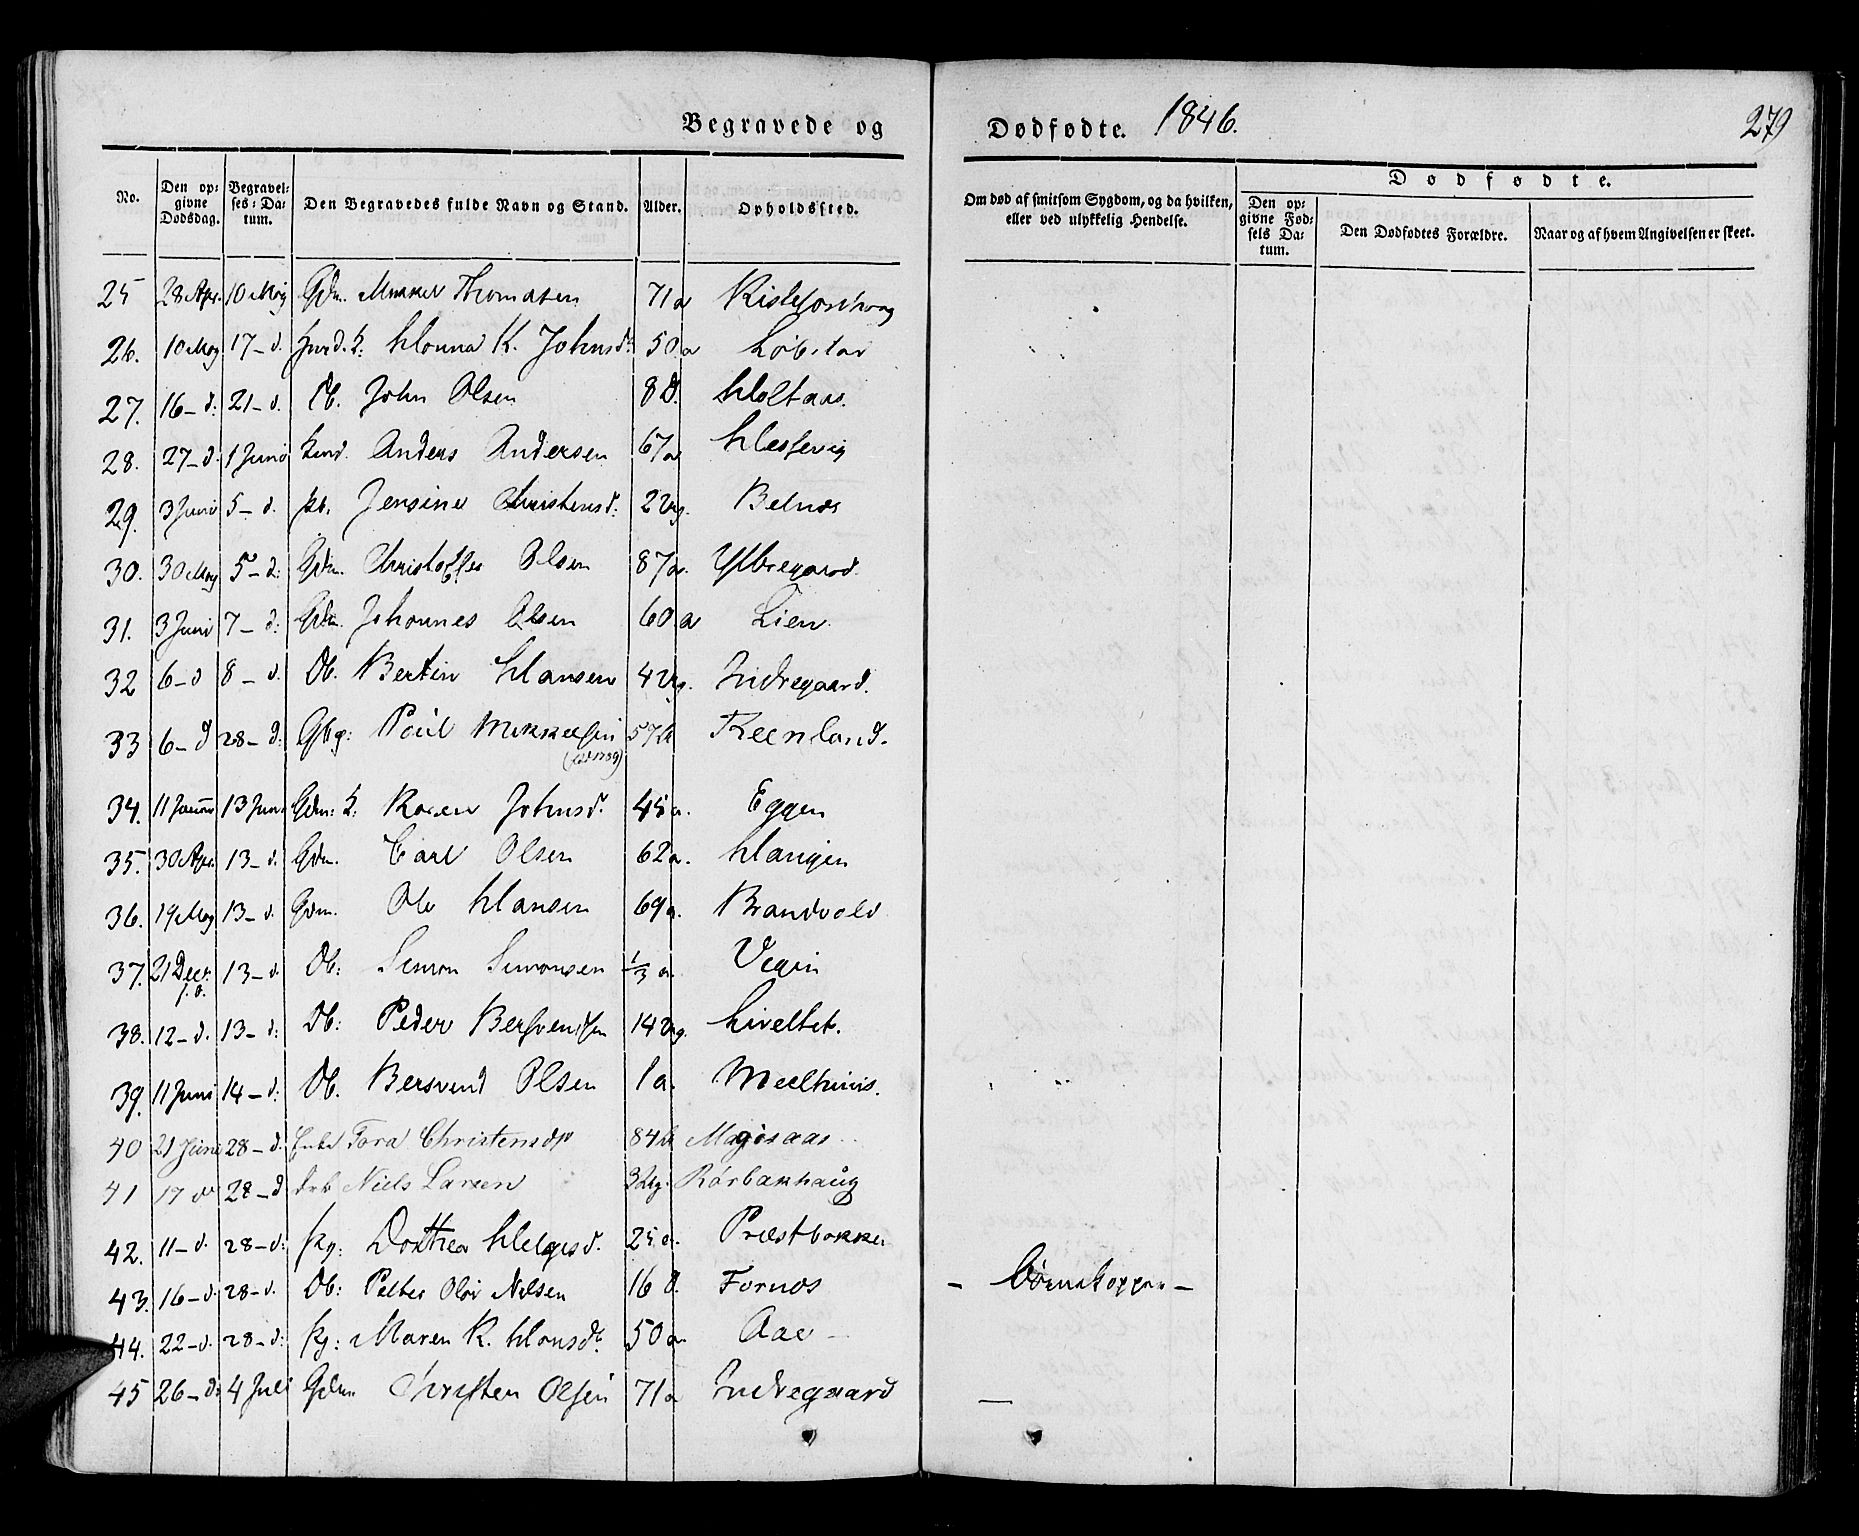 Begravede og Dødfødte. 1846. 279
No. Den opgivne Dødsdag. Begravelses-Datum. Den Begravedes fulde Navn og Stand. Alder. Opholdssted. Om død af smitsom Sygdom, og da hvilken, eller ved ulykkelig Hendelse. Dødfødte. Den opgivne Fødsels Datum. Den Dødfødtes Forældre. Naar og af hvem Angivelsen er skeet.
25 28 Apr. 10 May Gdm. Mikkel Thomasen 71 a
26. 10 May 17 - d. K. Johnsd. 50 a
27. 16 - d. 21 - d. Db. John Olsen 8 d. Holtaas.
28. 27 - d. 1 Juni Anders Andersen 67 a Hessevig
29. 3 Juni 5 - d. Pb. Jensine Christensd: 2 Ug. Belnes
30. 30 May 5 - d: Gdm. Christoffer Olsen 87 a. Yttregaard.
31. 3 Juni 7 - d: Gdm. Johannes Olsen 60 a Lien.
32 6 - d 8 - d. Db. Bertin Hansen 4 Ug. Indregaard.
33 6 - d 28 - d: Poül Mikkelsen 57 a
34. 11 13 Juni Gdm: K: Karen Johnsd. 45 a. Eggen
35. 30 Apr. 13 - d. Gdm. Carl Olsen 62 a. Hangen
36. 19 May 13 - d. Gdm. Ole Hansen 69 a. Brandvold
37. 21 Decr. f. a. 13 - d. Db: Simon Simonsen 1/3 a.
38. 12 - d. 13 - d: Db: Peder Bersvendsen 14 Ug. Liveltet.
39. 11 Juni 14 - d: Db. Bersvend Olsen 1 a. Meelhuus.
40 21 Juni 28 - d. Enke Tora Christensdr 84
41 17 do 28 - d drb Niels Larsen 3 Ug. Rørbakhaug
42. 11 - d. 28 - d: Pg: Dorthea Helgesd. 25 a. Præstbakken
43. 16 - d. 28 - d. Db: Petter Olai Nilsen 16 d. Fornes - Börnekopper -
44. 22 - d. 28 - d: Pg: Maren K. Hansdr. 50 a. Aae -
45 26 - d: 4 Juli Gdm Christen Olsen 71 a Indregaard —